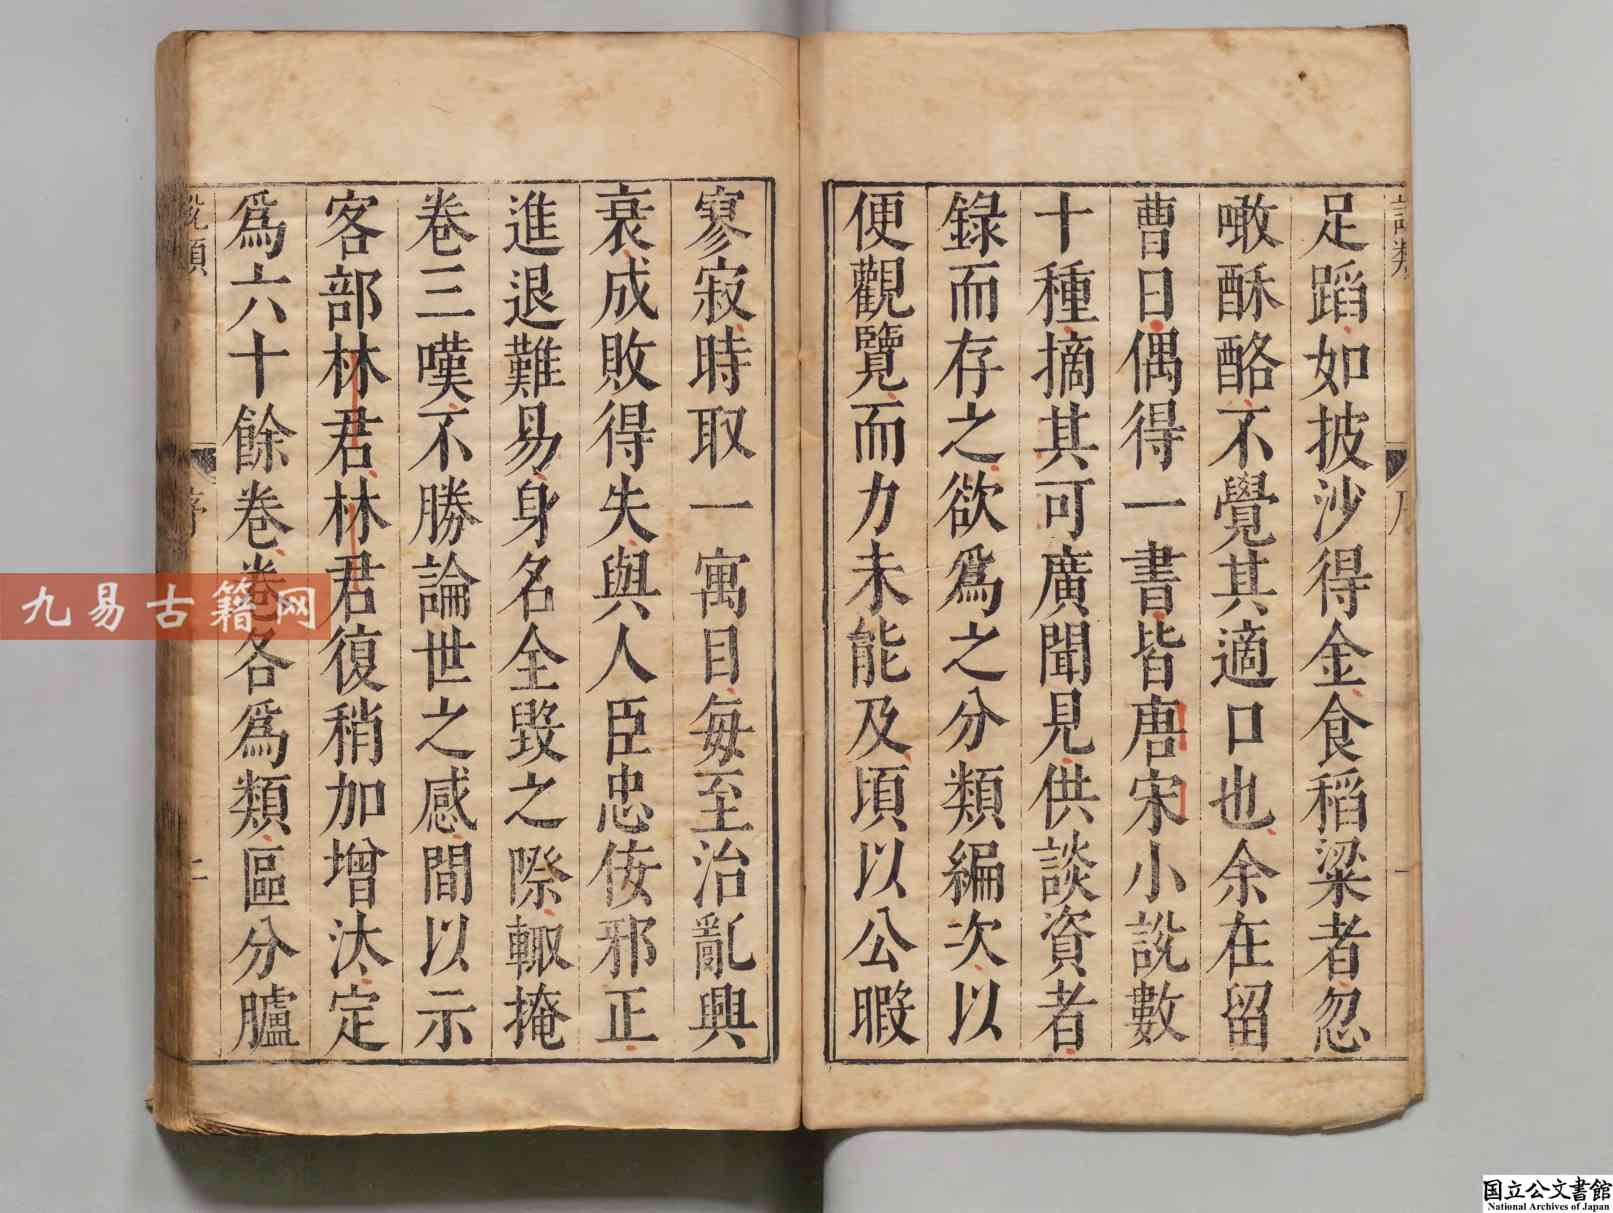 足蹈如披沙得金食稻粱者忽
噉酥酪不覺其適口也余在留
曹日偶得一書皆唐宋小說數
十種摘其可廣聞見供談資者
錄而存之欲爲之分類編次以
便觀覽而力未能及頃以公暇
寥寂時取一寓目每至治亂興
衰成敗得失與人臣忠侫邪正
進退難易身名全毀之際輙掩
卷三嘆不勝論世之感間以示
客部林君林君復稍加增汰定
爲六十餘卷卷各爲類區分臚
說類
序
二
九易古籍网
国立公文書館
National Archives of Japan